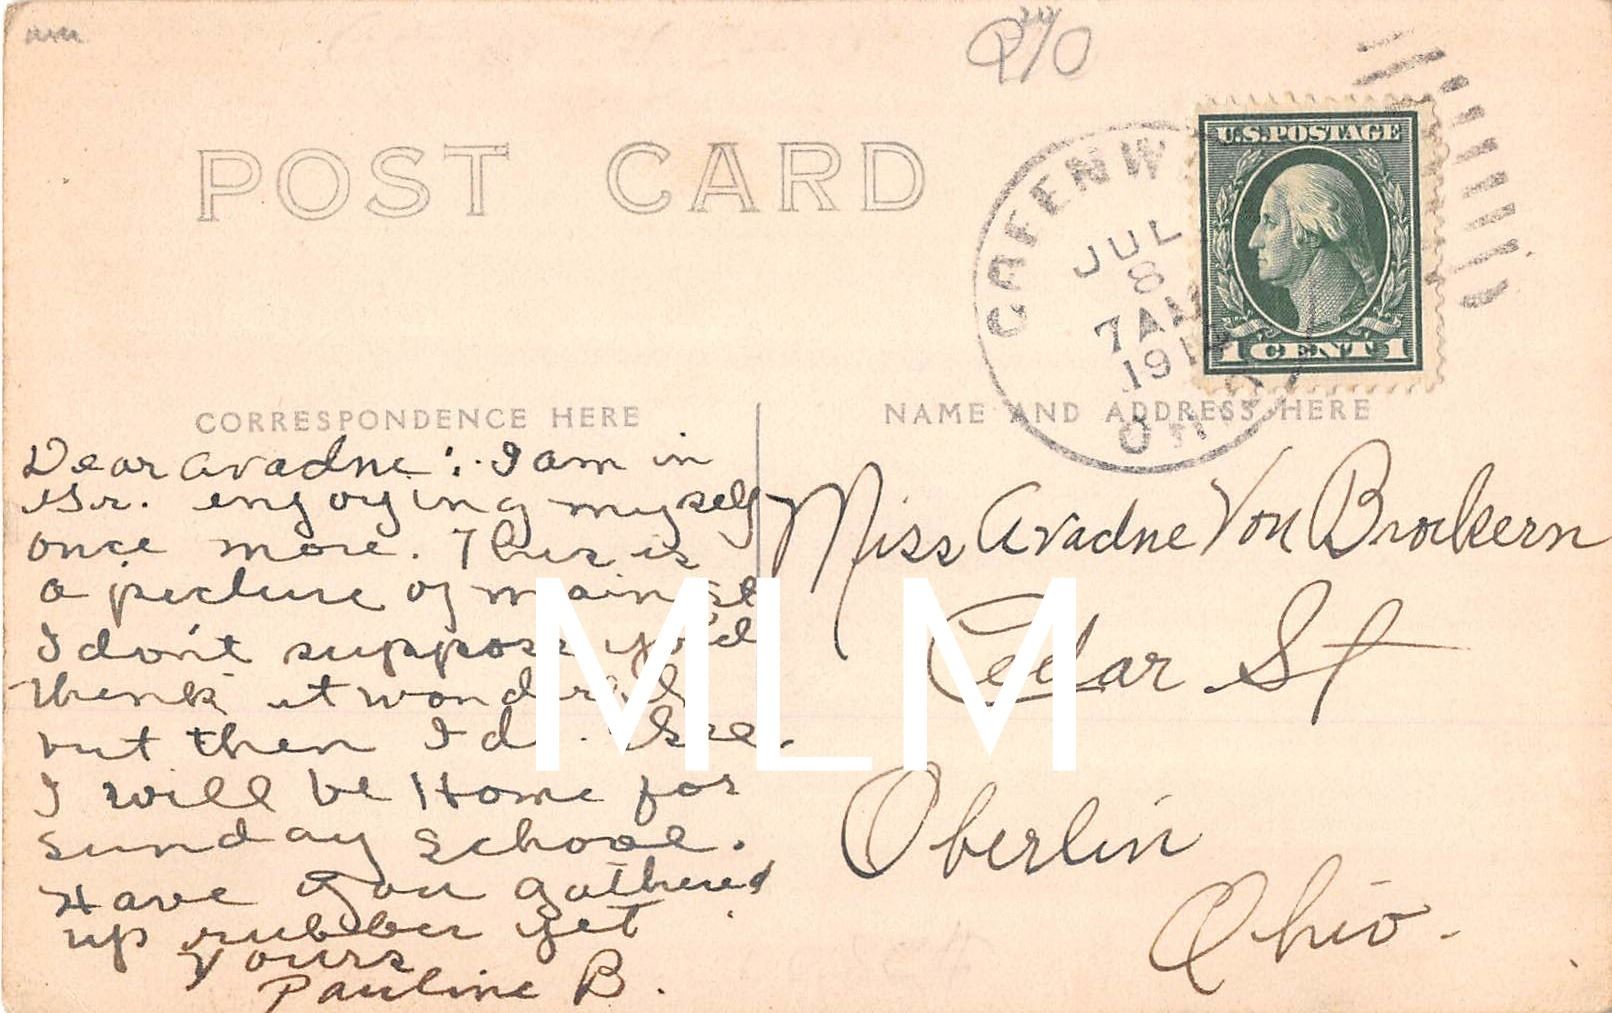 POST CARD
U.S.POSTAGE
1 CENT 1
GREENW
JUL
8
7 AM
191
OHIO
CORRESPONDENCE HERE
NAME AND ADDRESS HERE
Dear Avadne:. I am in
Gr. enjoying myself
once more. This is
a picture of main st
I don't suppose you'd
think it wonderful
but then I do. Gee.
I will be Home for
sunday school.
Have you gathered
up rubber yet
Yours
Pauline B.
Miss Avadne Von Brockern
Cedar St
Oberlin
Ohio.
MLM